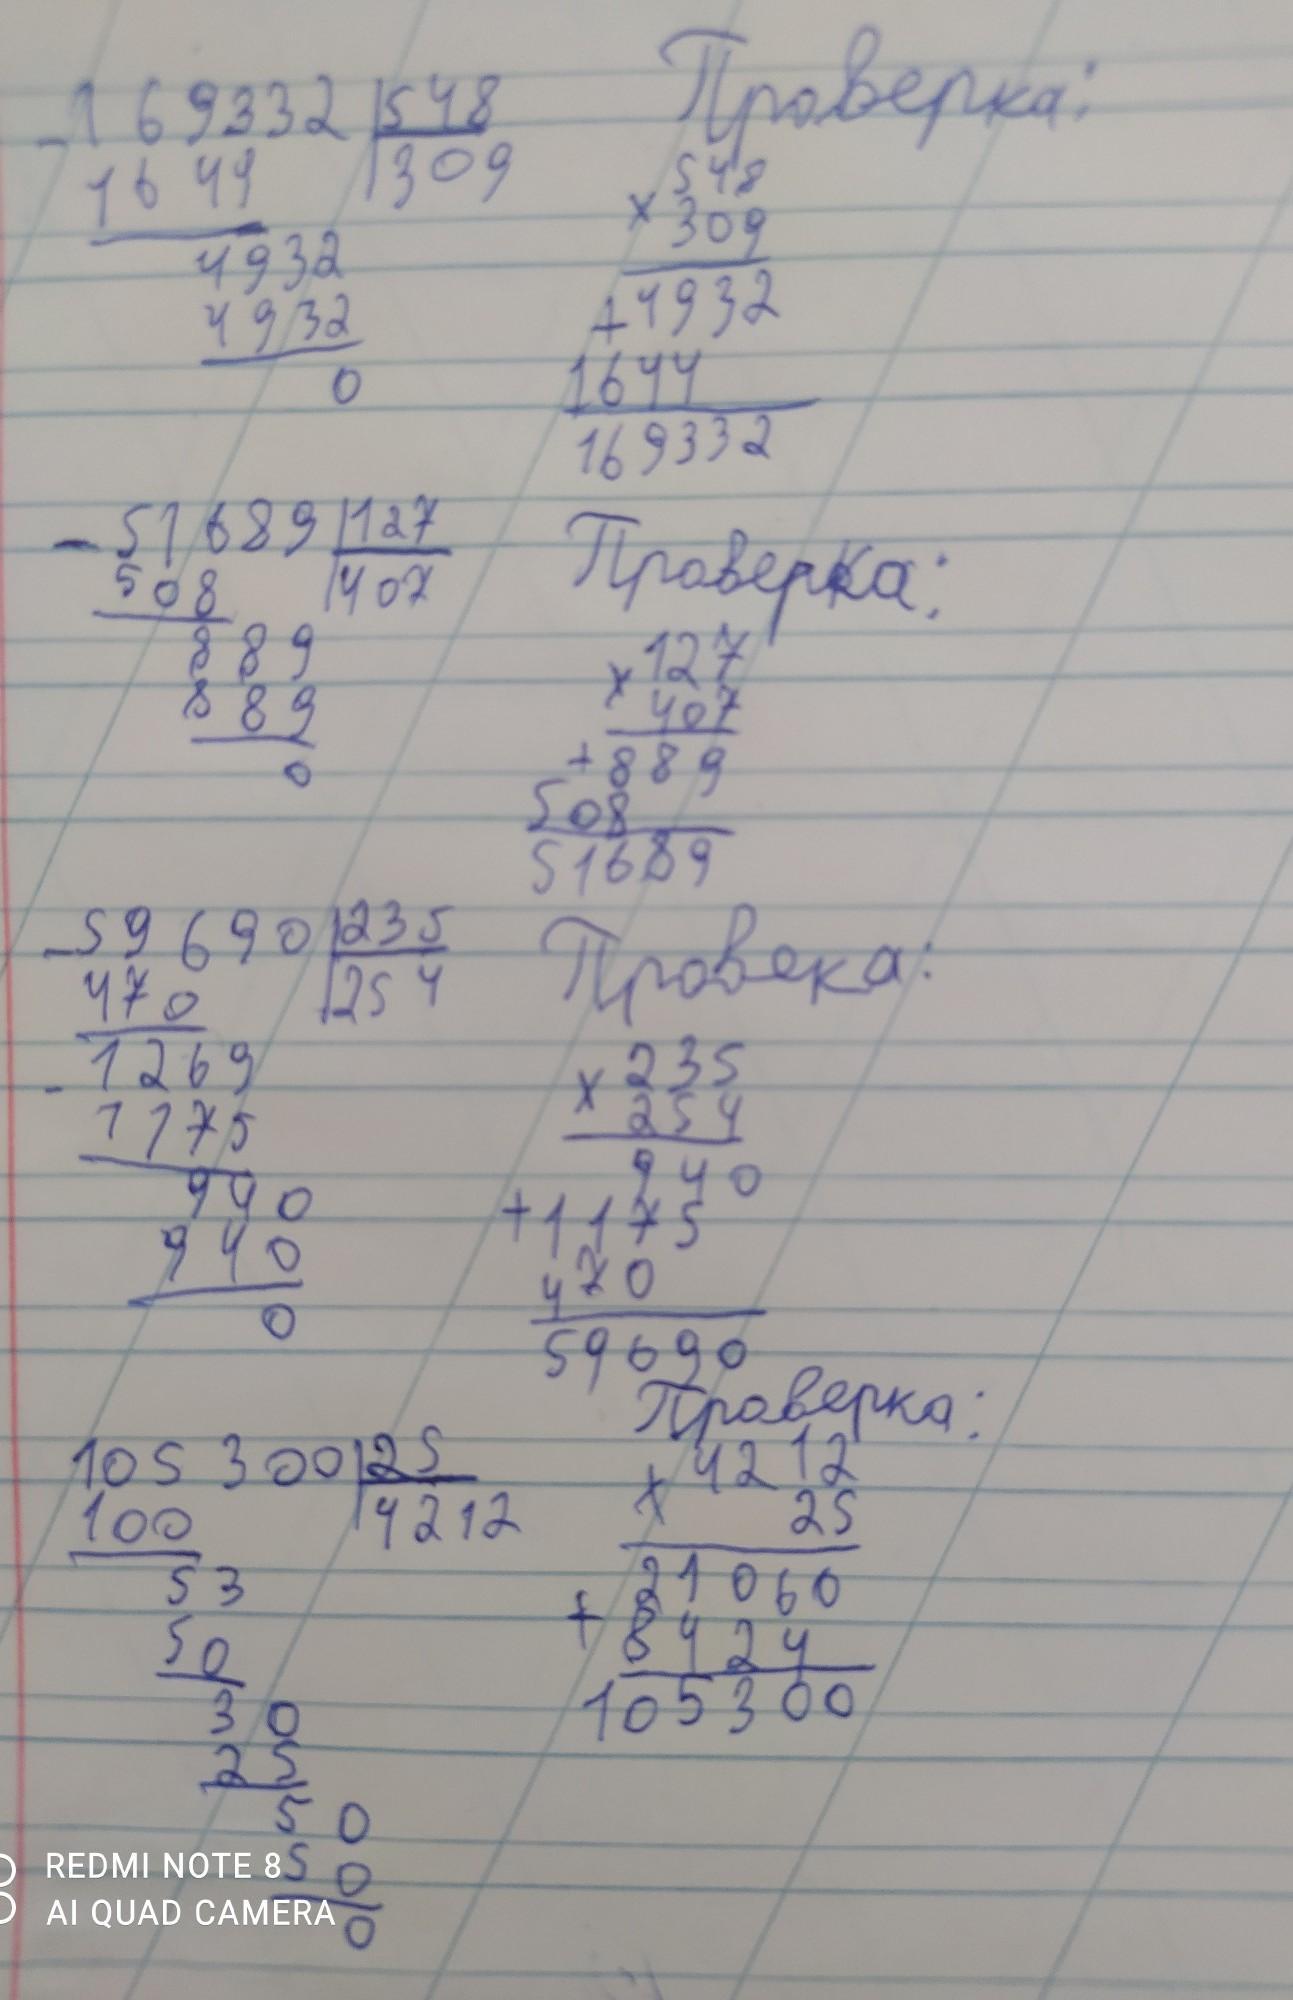 -169332|548 Проверка:
1644 |309
548
x 309
4932
4932
0
+4932
1644
169332
-51689|127 Проверка:
508 |407
889
889
0
x 127
407
+889
508
51689
-59690|235 Провека:
470 |254
-1269
1175
940
940
0
x 235
254
940
+1175
470
59690
105300|25 Проверка:
100 |4212
53
50
30
25
50
50
0
x 4212
25
21060
+8424
105300
REDMI NOTE 8
AI QUAD CAMERA